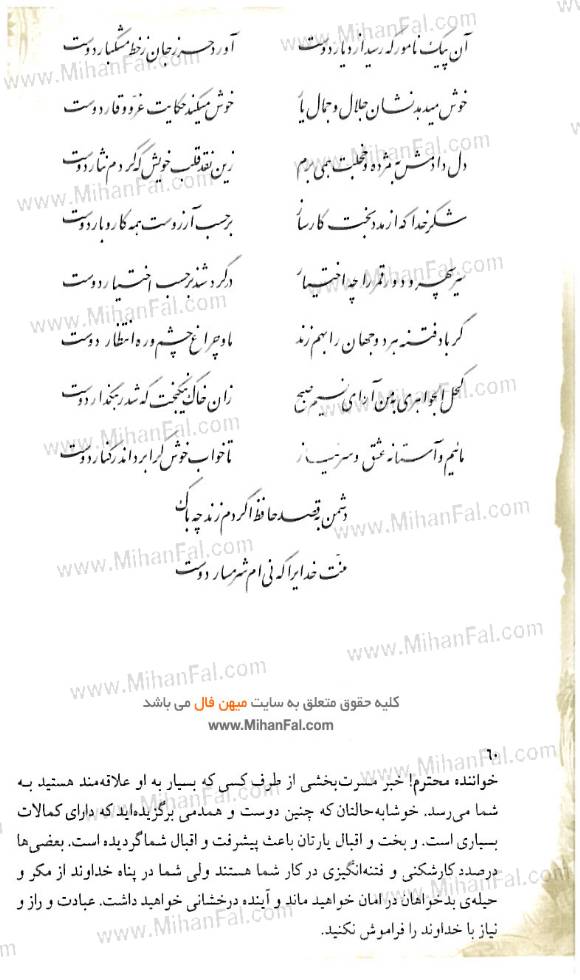 آن پیک نامور که رسید از دیار دوست آورد حرز جان ز خط مشکبار دوست
خوش میدهد نشان جلال و جمال یار خوش میکند حکایت عز و وقار دوست
دل دادمش به مژده و خجلت همی برم زین نقد قلب خویش که کردم نثار دوست
شکر خدا که از مدد بخت کارساز بر حسب آرزوست همه کار و بار دوست
سیر سپهر و دور قمر را چه اختیار در گردشند بر حسب اختیار دوست
گر باد فتنه هر دو جهان را بهم زند ما و چراغ چشم و ره انتظار دوست
کحل الجواهری به من آر ای نسیم صبح زان خاک نیکبخت که شد رهگذار دوست
مائیم و آستانه عشق و سر نیاز تا خواب خوش کرا برد اندر کنار دوست
دشمن به قصد حافظ اگر دم زند چه باک
منّت خدایرا که نی ام شرمسار دوست
کلیه حقوق متعلق به سایت میهن فال می باشد
www.MihanFal.com
۶۰
خواننده محترم! خبر مسرت‌بخشی از طرف کسی که بسیار به او علاقه‌مند هستید به
شما می‌رسد. خوشا به حالتان که چنین دوست و همدمی برگزیده‌اید که دارای کمالات
بسیاری است. و بخت و اقبال یارتان باعث پیشرفت و اقبال شما گردیده است. بعضی‌ها
درصدد کارشکنی و فتنه‌انگیزی در کار شما هستند ولی شما در پناه خداوند از مکر و
حیله‌ی بدخواهان در امان خواهید ماند و آینده درخشانی خواهید داشت. عبادت و راز و
نیاز با خداوند را فراموش نکنید.